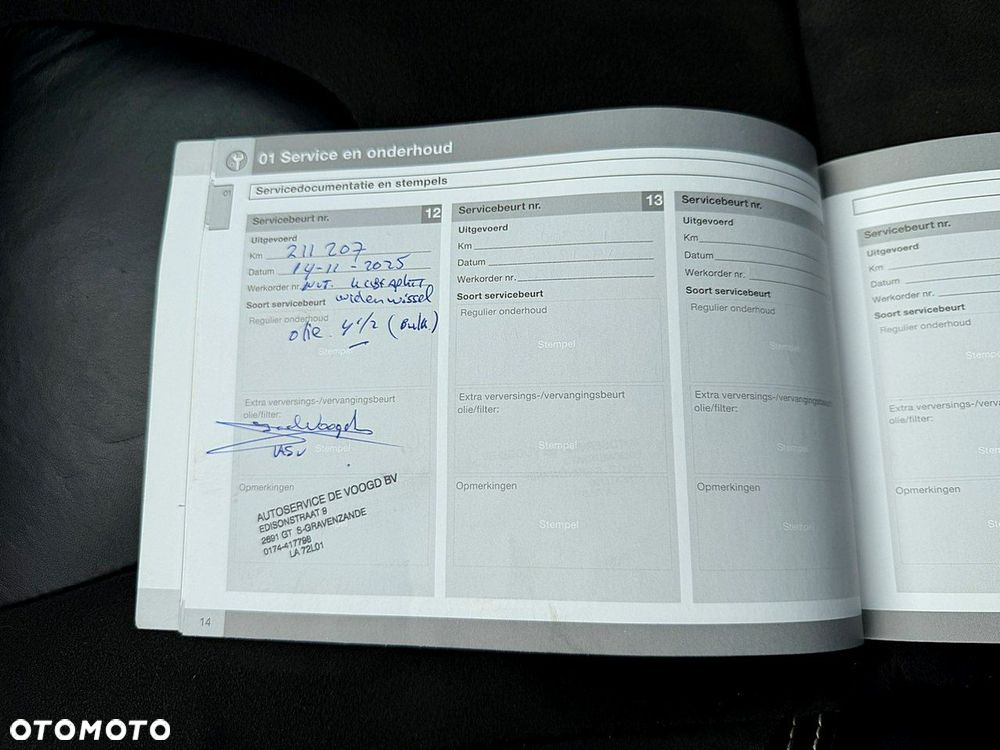 01 Service en onderhoud
01
Servicedocumentatie en stempels
Servicebeurt nr. 12
Uitgevoerd
Km 211 207
Datum 14-11-2025
Werkorder nr.
Soort servicebeurt
Regulier onderhoud
olie 4 1/2
Stempel
Extra verversings-/vervangingsbeurt
olie/filter:
Stempel
Opmerkingen
AUTOSERVICE DE VOOGD BV
EDISONSTRAAT 8
2691 GT S-GRAVENZANDE
0174-417798
LA 72L01
14
Servicebeurt nr. 13
Uitgevoerd
Km
Datum
Werkorder nr.
Soort servicebeurt
Regulier onderhoud
Stempel
Extra verversings-/vervangingsbeurt
olie/filter:
Stempel
Opmerkingen
Stempel
Servicebeurt nr.
Uitgevoerd
Km
Datum
Werkorder nr.
Soort servicebeurt
Regulier onderhoud
Stempel
Extra verversings-/vervangingsbeurt
olie/filter:
Stempel
Opmerkingen
Stempel
Servicebeurt nr.
Uitgevoerd
Km
Datum
Werkorder nr.
Soort servicebeurt
Regulier onderhoud
Extra verversings-/
olie/filter:
Opmerkingen
OTOMOTO